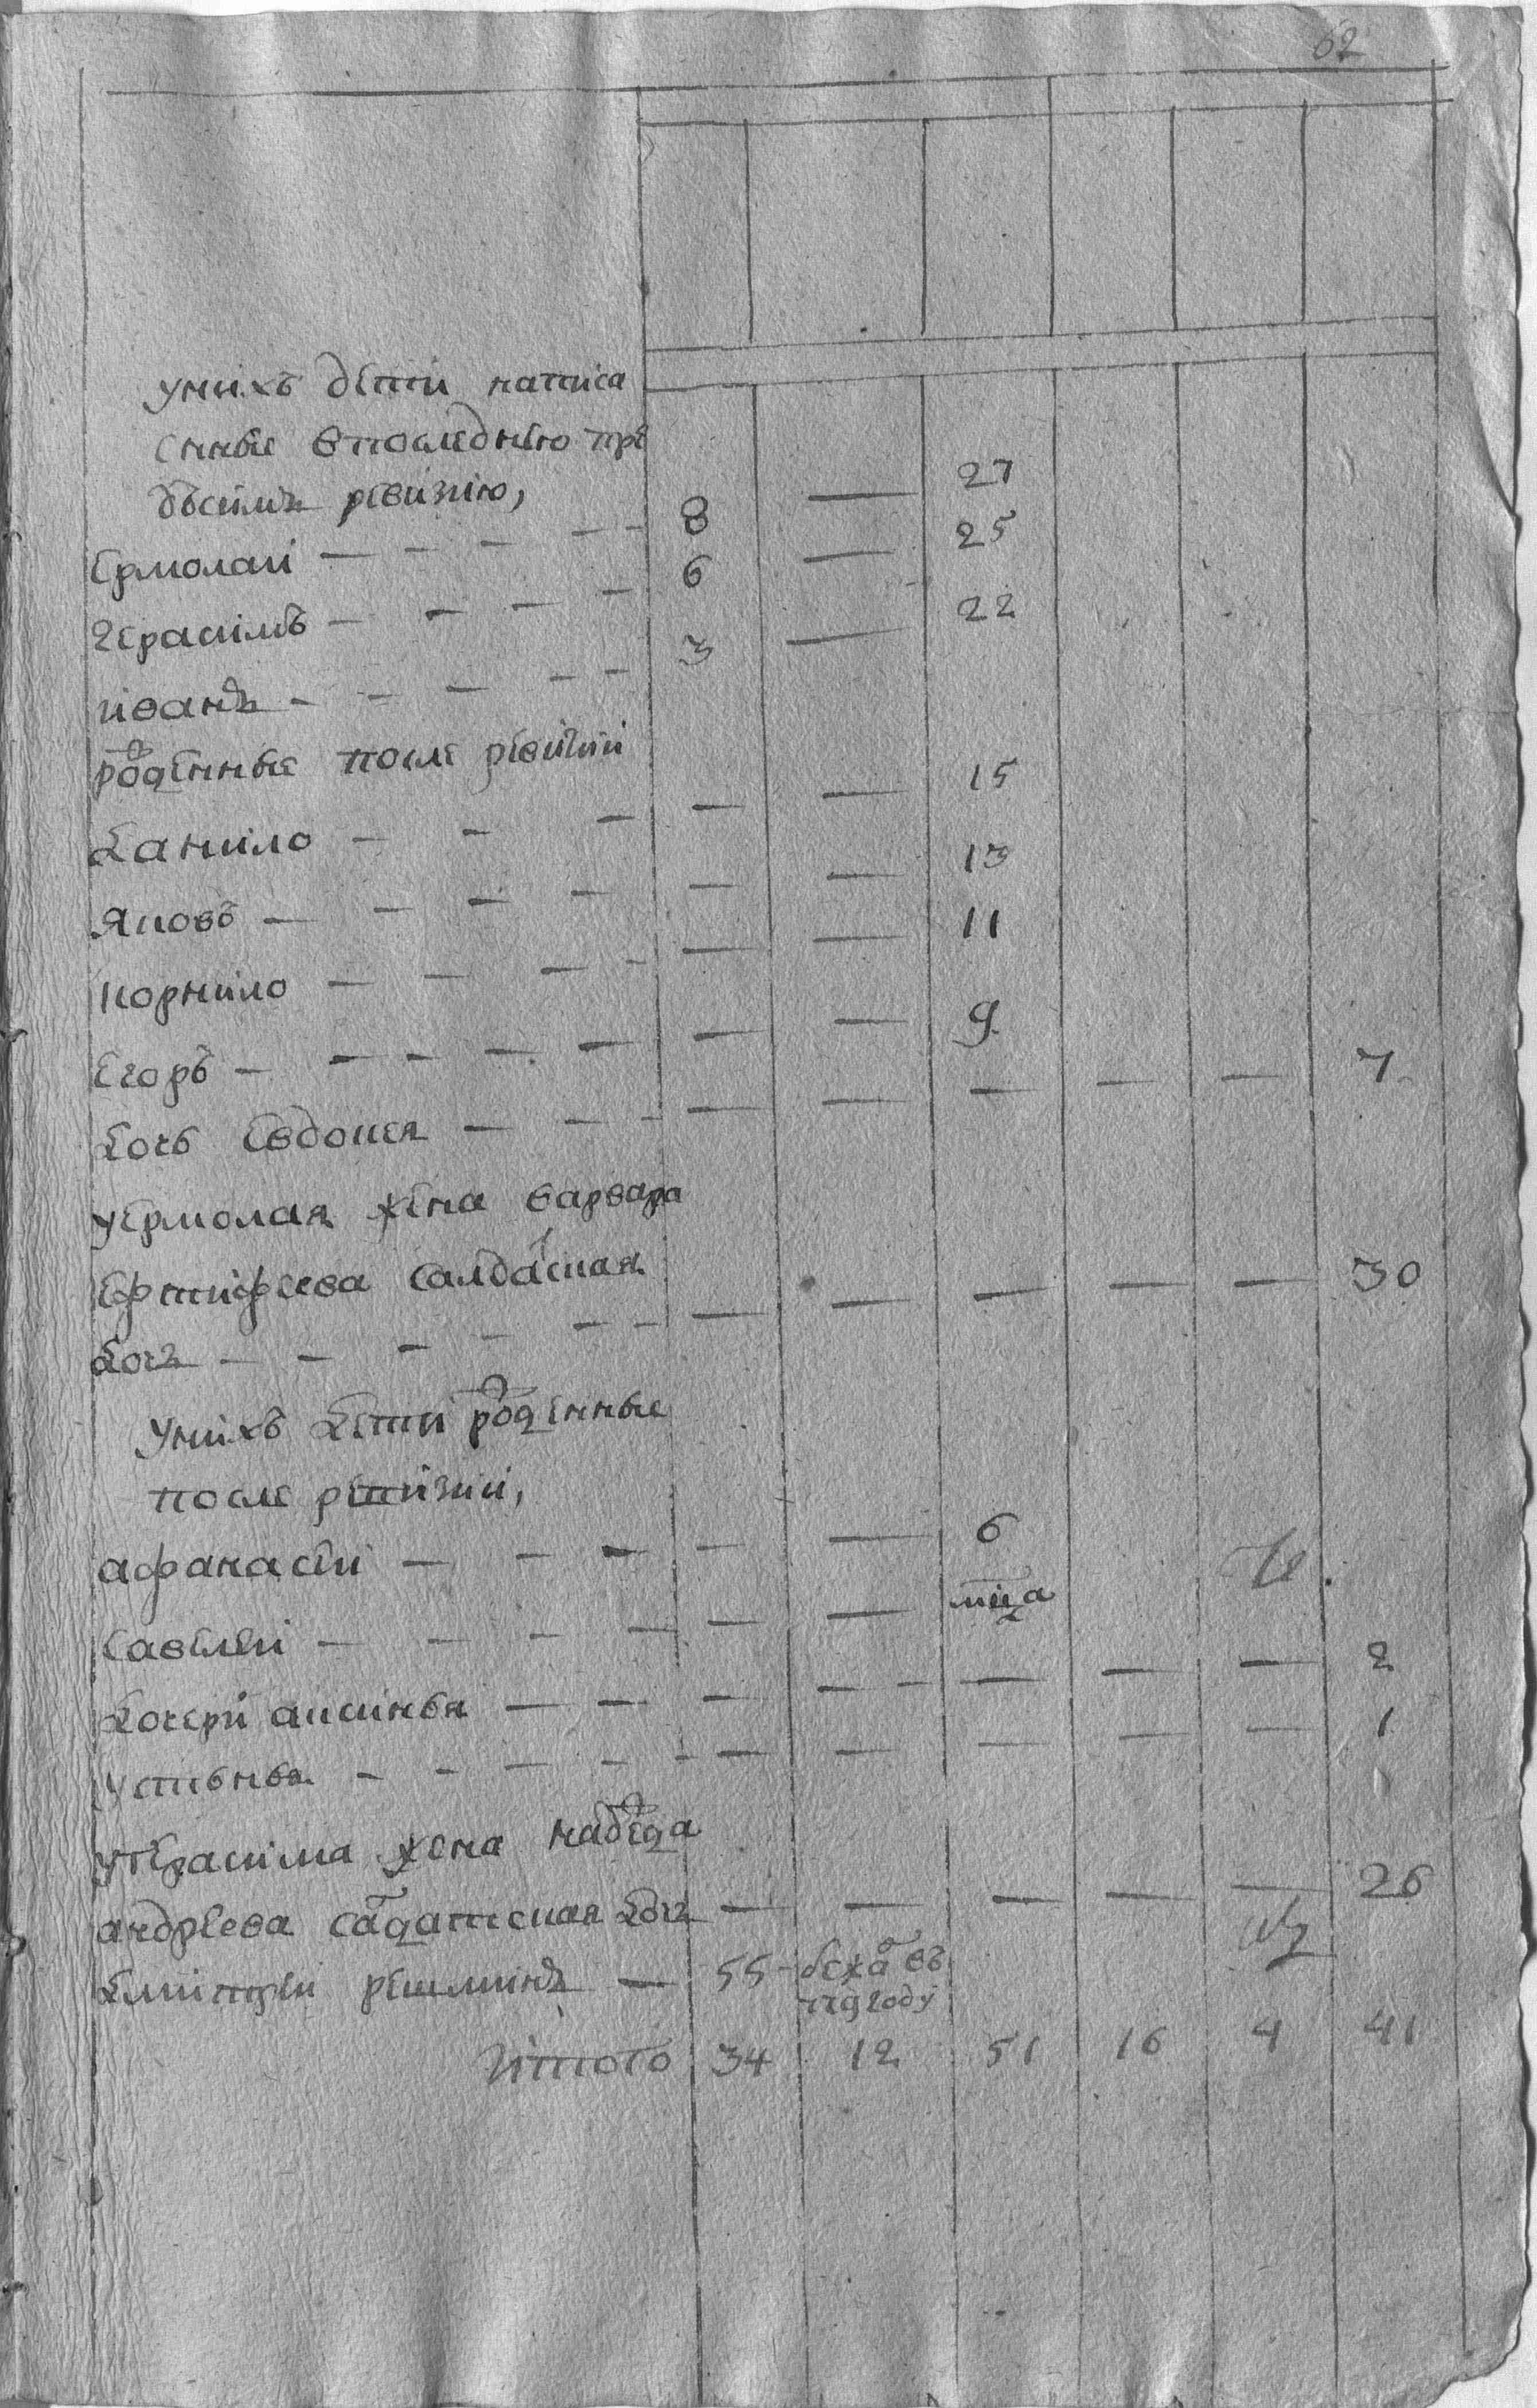 62
унихъ дети написа
нные впоследнею пре
дъсимъ ревизию,
Ермолаи — — — — 8 — 27
герасимъ — — — — 6 — 25
иванъ — — — — — 3 — 22
роденные после ревизии
Данило — — — — — 15
Яковъ — — — — — — 13
корнило — — — — — — 11
Егоръ — — — — — — — 9
Дочь Евдокея — — — — — — — — 7
уермолая жена варвара
Ефтифеева салдатская
дочь — — — — — — — — — — — 30
унихъ Дети роденные
после ревизии,
афанасеи — — — — — 6
Савелеи — — — — — — мца
Дочери аксинья — — — — — — — — 2
устинья — — — — — — — — — — 1
угерасима жена надеда
андреева садатская дочь — — — — — 26
Дмитреи — 55 - бежа въ
году
итого 34 12 51 16 4 41